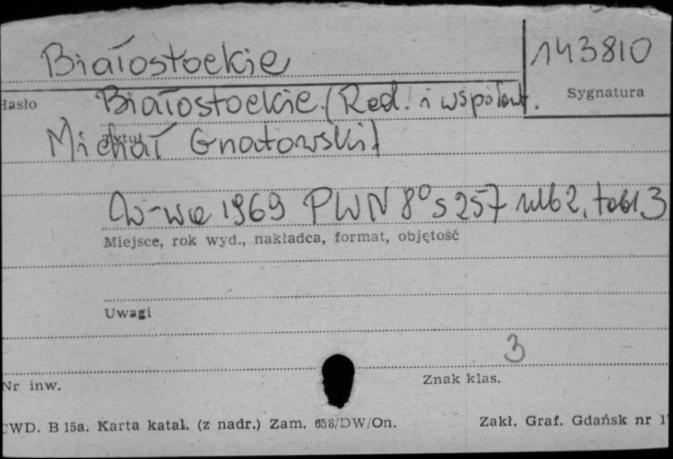 Białostockie
143810
Hasło
Białostockie. (Red. i współaut.
Sygnatura
Tytuł
Michał Gnatowski)
W-wa 1969 PWN 8° s 257 nlb 2, tabl. 3
Miejsce, rok wyd., nakładca, format, objętość
Uwagi
3
Nr inw.
Znak klas.
CWD. B 15a. Karta katal. (z nadr.) Zam. 658/DW/On.
Zakł. Graf. Gdańsk nr 1